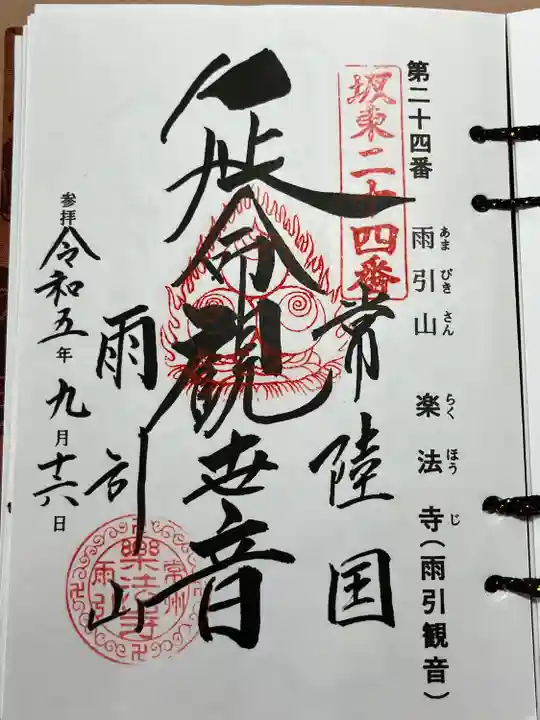 第二十四番 雨引山 楽法寺(雨引観音)
あま びき さん らく ほう じ
坂東二十四番
常陸国
延命観世音
雨引山
樂法寺
常州
雨引
参拝 令和五年九月十六日